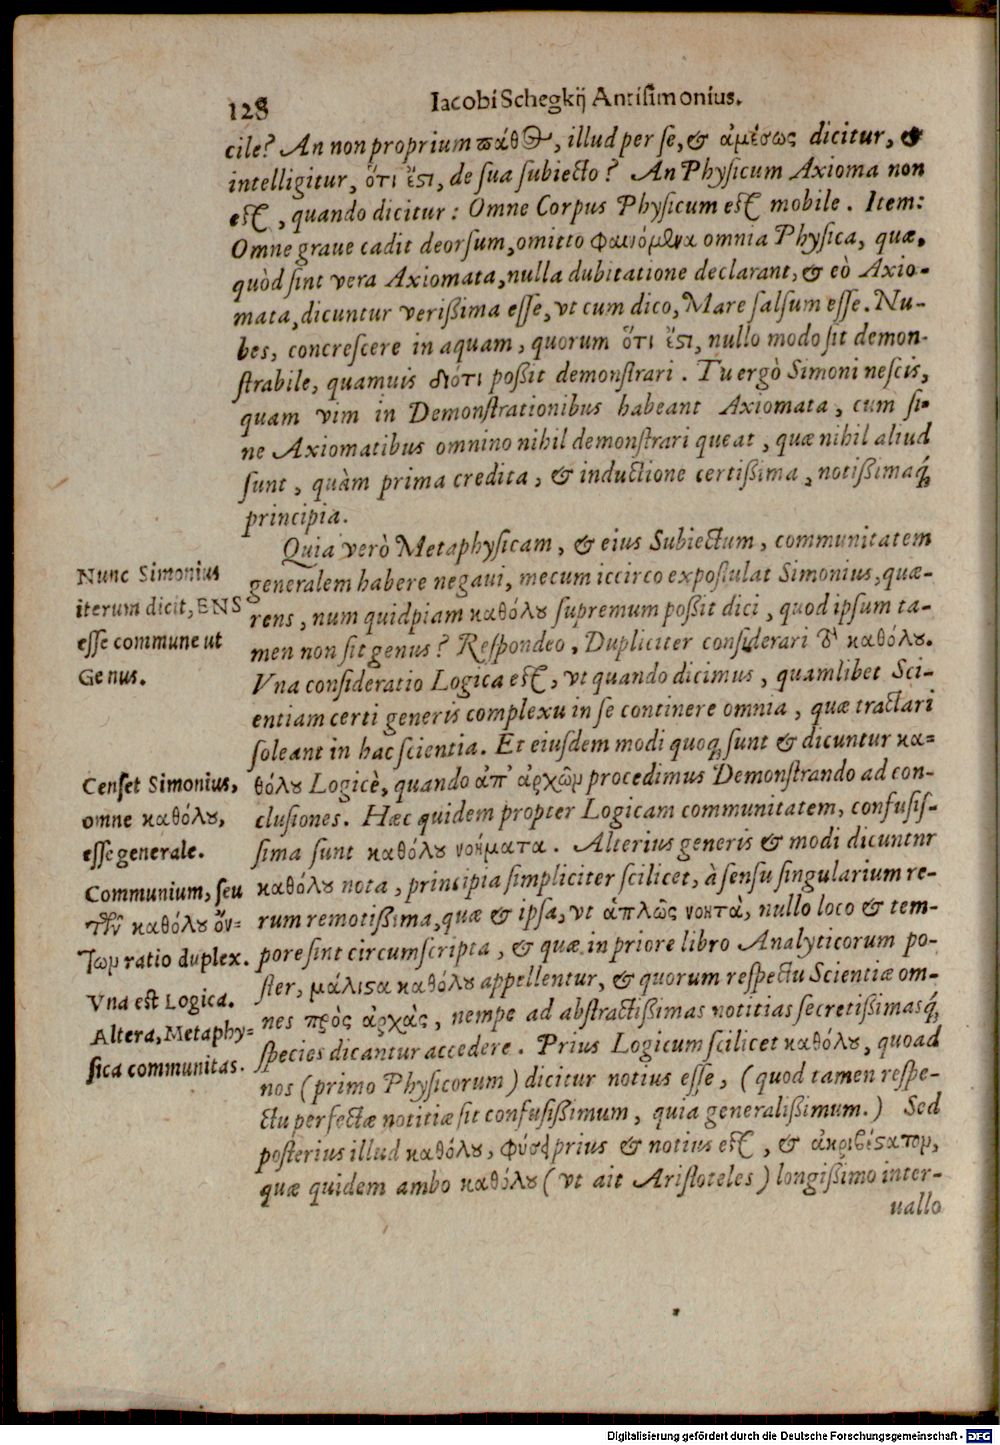 128
Iacobi Schegkij Antisimonius.
cile? An non proprium πάθος, illud per se, & ἀμέσως dicitur, &
intelligitur, ὅτι ἔστι, de sua subiecto? An Physicum Axioma non
est, quando dicitur: Omne Corpus Physicum est mobile. Item:
Omne graue cadit deorsum, omitto φαινόμενα omnia Physica, quæ,
quòd sint vera Axiomata, nulla dubitatione declarant, & eò Axio-
mata, dicuntur verißima esse, vt cum dico, Mare salsum esse. Nu-
bes, concrescere in aquam, quorum ὅτι ἔστι, nullo modo sit demon-
strabile, quamuis διότι poßit demonstrari. Tu ergò Simoni nescis,
quam vim in Demonstrationibus habeant Axiomata, cum si-
ne Axiomatibus omnino nihil demonstrari queat, quæ nihil aliud
sunt, quàm prima credita, & inductione certißima, notißimaq́;
principia.
Quia verò Metaphysicam, & eius Subiectum, communitatem
generalem habere negaui, mecum iccirco expostulat Simonius, quæ-
rens, num quidpiam καθόλου supremum poßit dici, quod ipsum ta-
men non sit genus? Respondeo, Dupliciter considerari τὸ καθόλου.
Vna consideratio Logica est, vt quando dicimus, quamlibet Sci-
entiam certi generis complexu in se continere omnia, quæ tractari
soleant in hac scientia. Et eiusdem modi quoq; sunt & dicuntur κα-
θόλου Logicè, quando ἀπ' ἀρχῶν procedimus Demonstrando ad con-
clusiones. Hæc quidem propter Logicam communitatem, confusis-
sima sunt καθόλου νοήματα. Alterius generis & modi dicuntnr
καθόλου nota, principia simpliciter scilicet, à sensu singularium re-
rum remotißima, quæ & ipsa, vt ἁπλῶς νοητὰ, nullo loco & tem-
pore sint circumscripta, & quæ in priore libro Analyticorum po-
ster, μάλιστα καθόλου appellentur, & quorum respectu Scientiæ om-
nes πρὸς ἀρχὰς, nempe ad abstractißimas notitias secretißimasq́;
species dicantur accedere. Prius Logicum scilicet καθόλου, quoad
nos (primo Physicorum) dicitur notius esse, (quod tamen respe-
ctu perfectæ notitiæ sit confusißimum, quia generalißimum.) Sed
posterius illud καθόλου, φύσει prius & notius est, & ἀκριβέστατον,
quæ quidem ambo καθόλου (vt ait Aristoteles) longißimo inter-
uallo
Nunc Simonius
iterum dicit, ENS
esse commune ut
Genus.
Censet Simonius,
omne καθόλου,
esse generale.
Communium, seu
τῶν καθόλου ὄν-
των ratio duplex.
Vna est Logica.
Altera, Metaphy-
sica communitas.
Digitalisierung gefördert durch die Deutsche Forschungsgemeinschaft - DFG